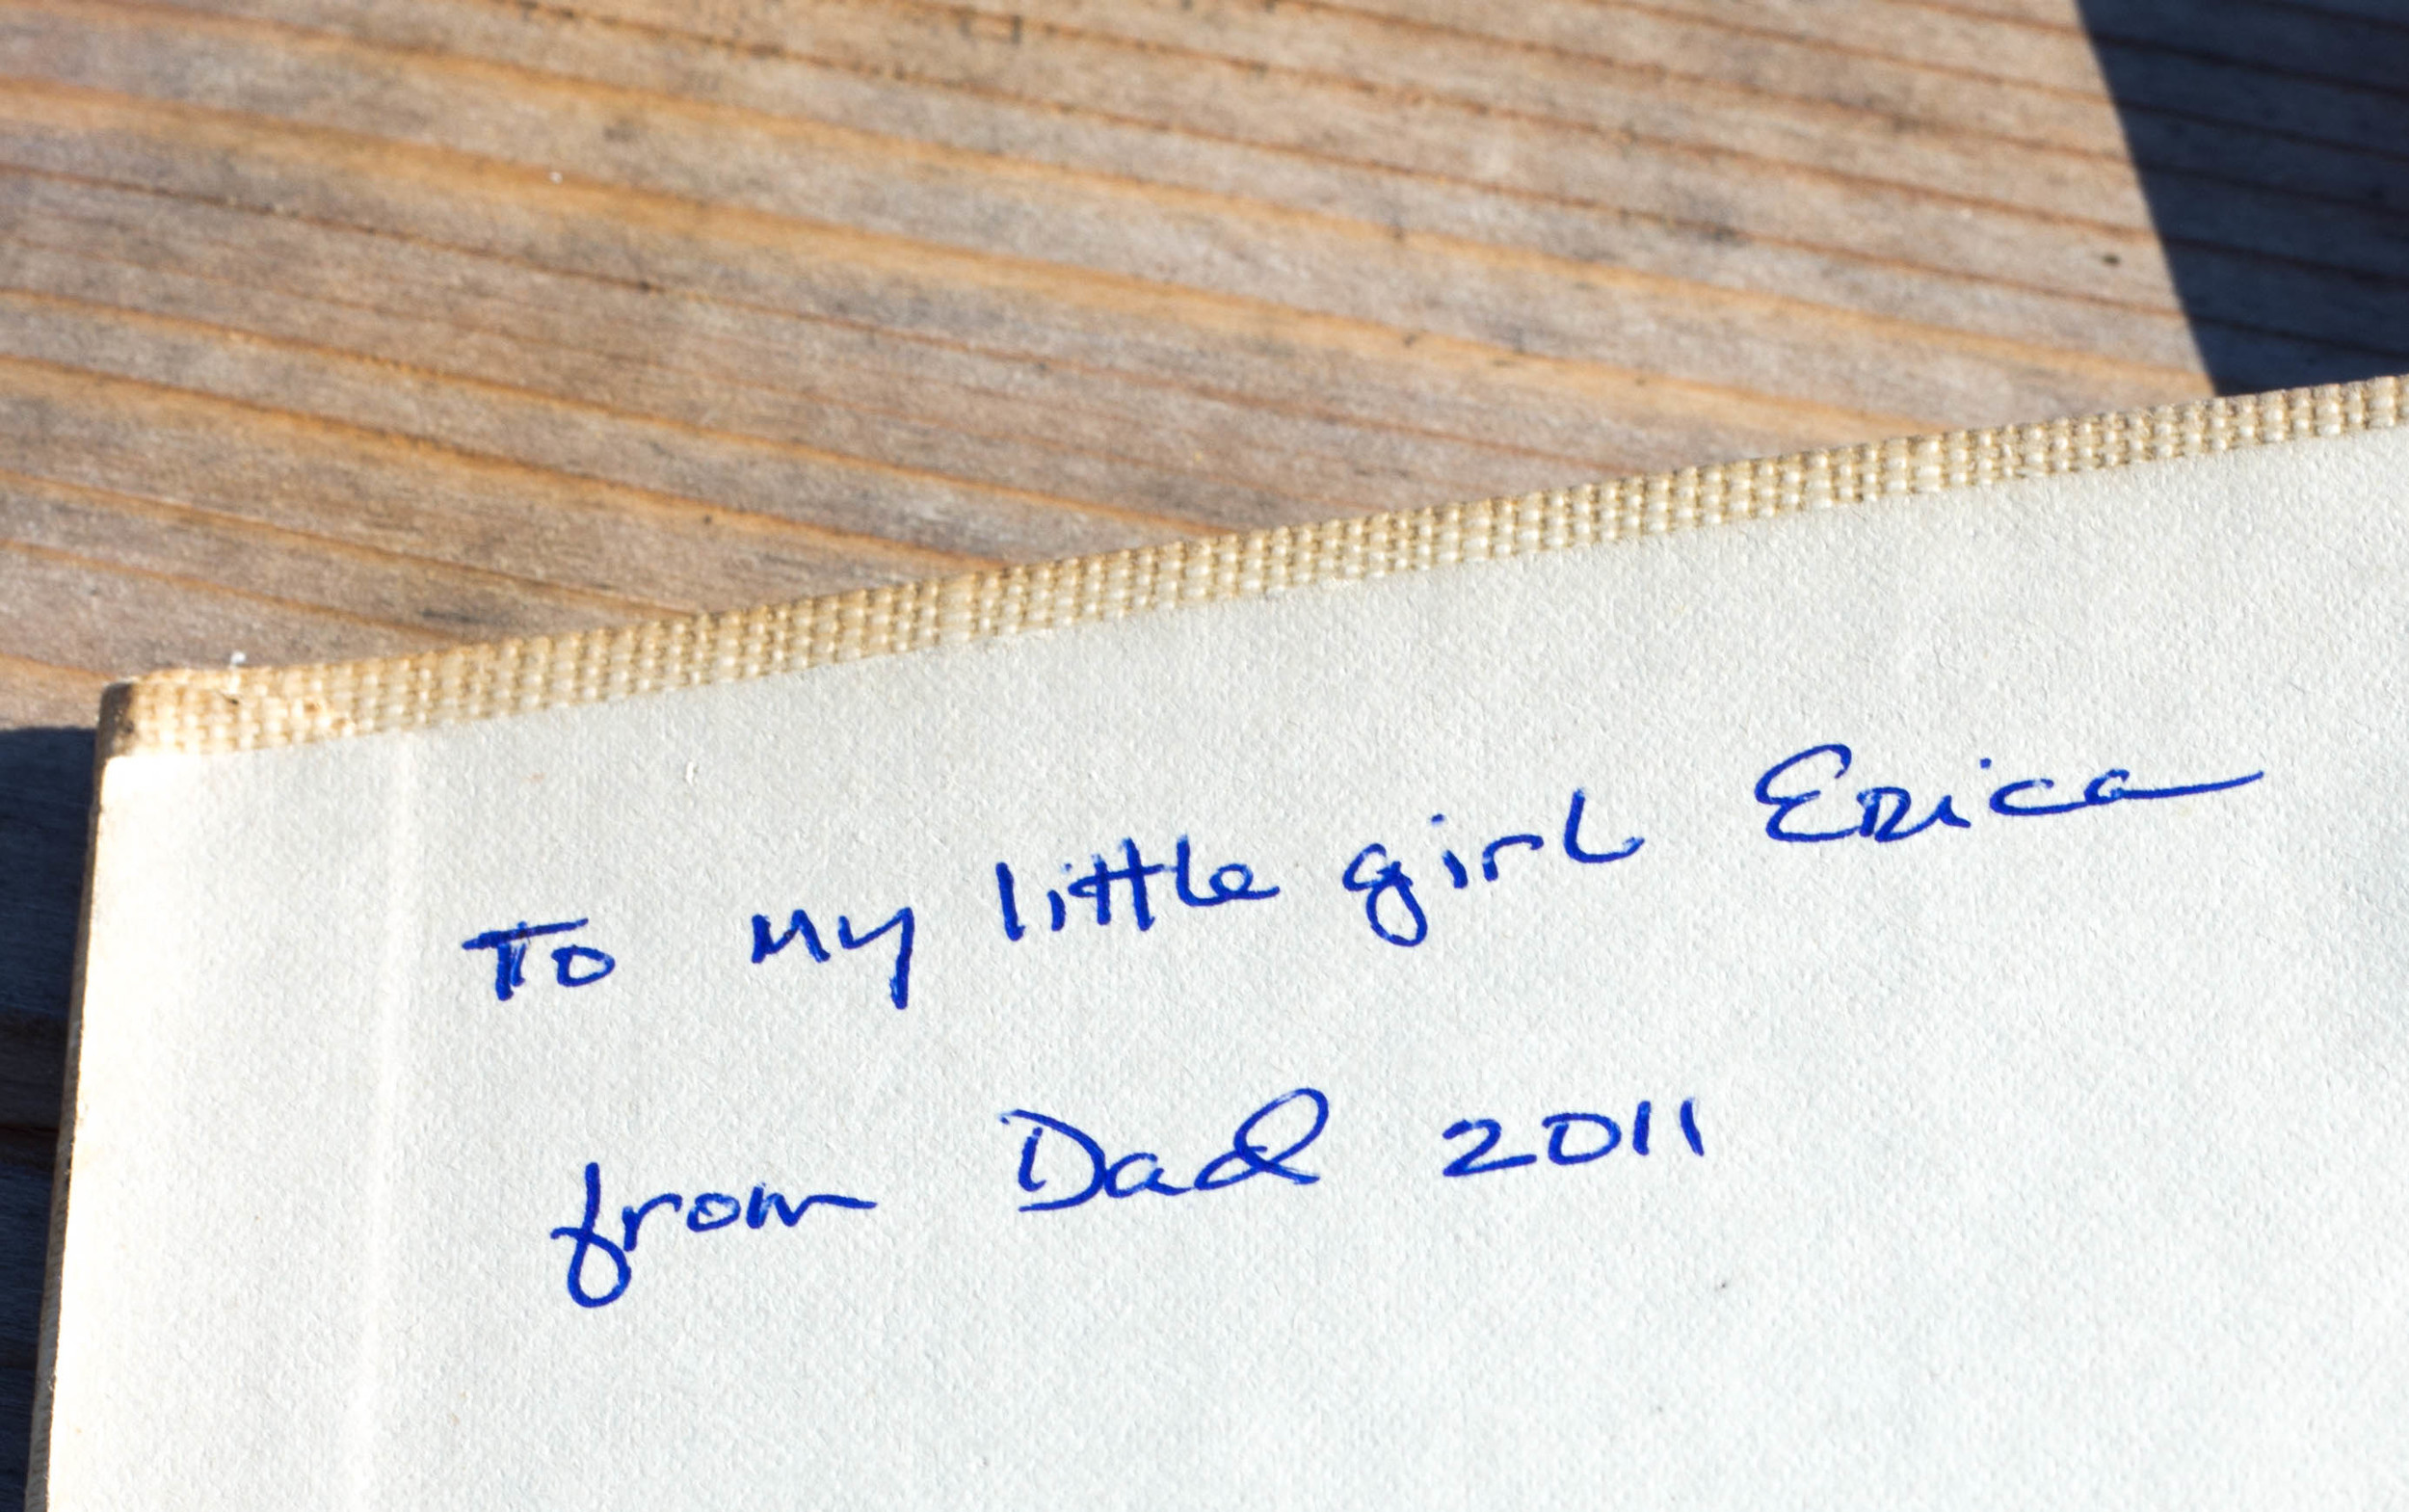 To my little girl Erica
from Dad 2011